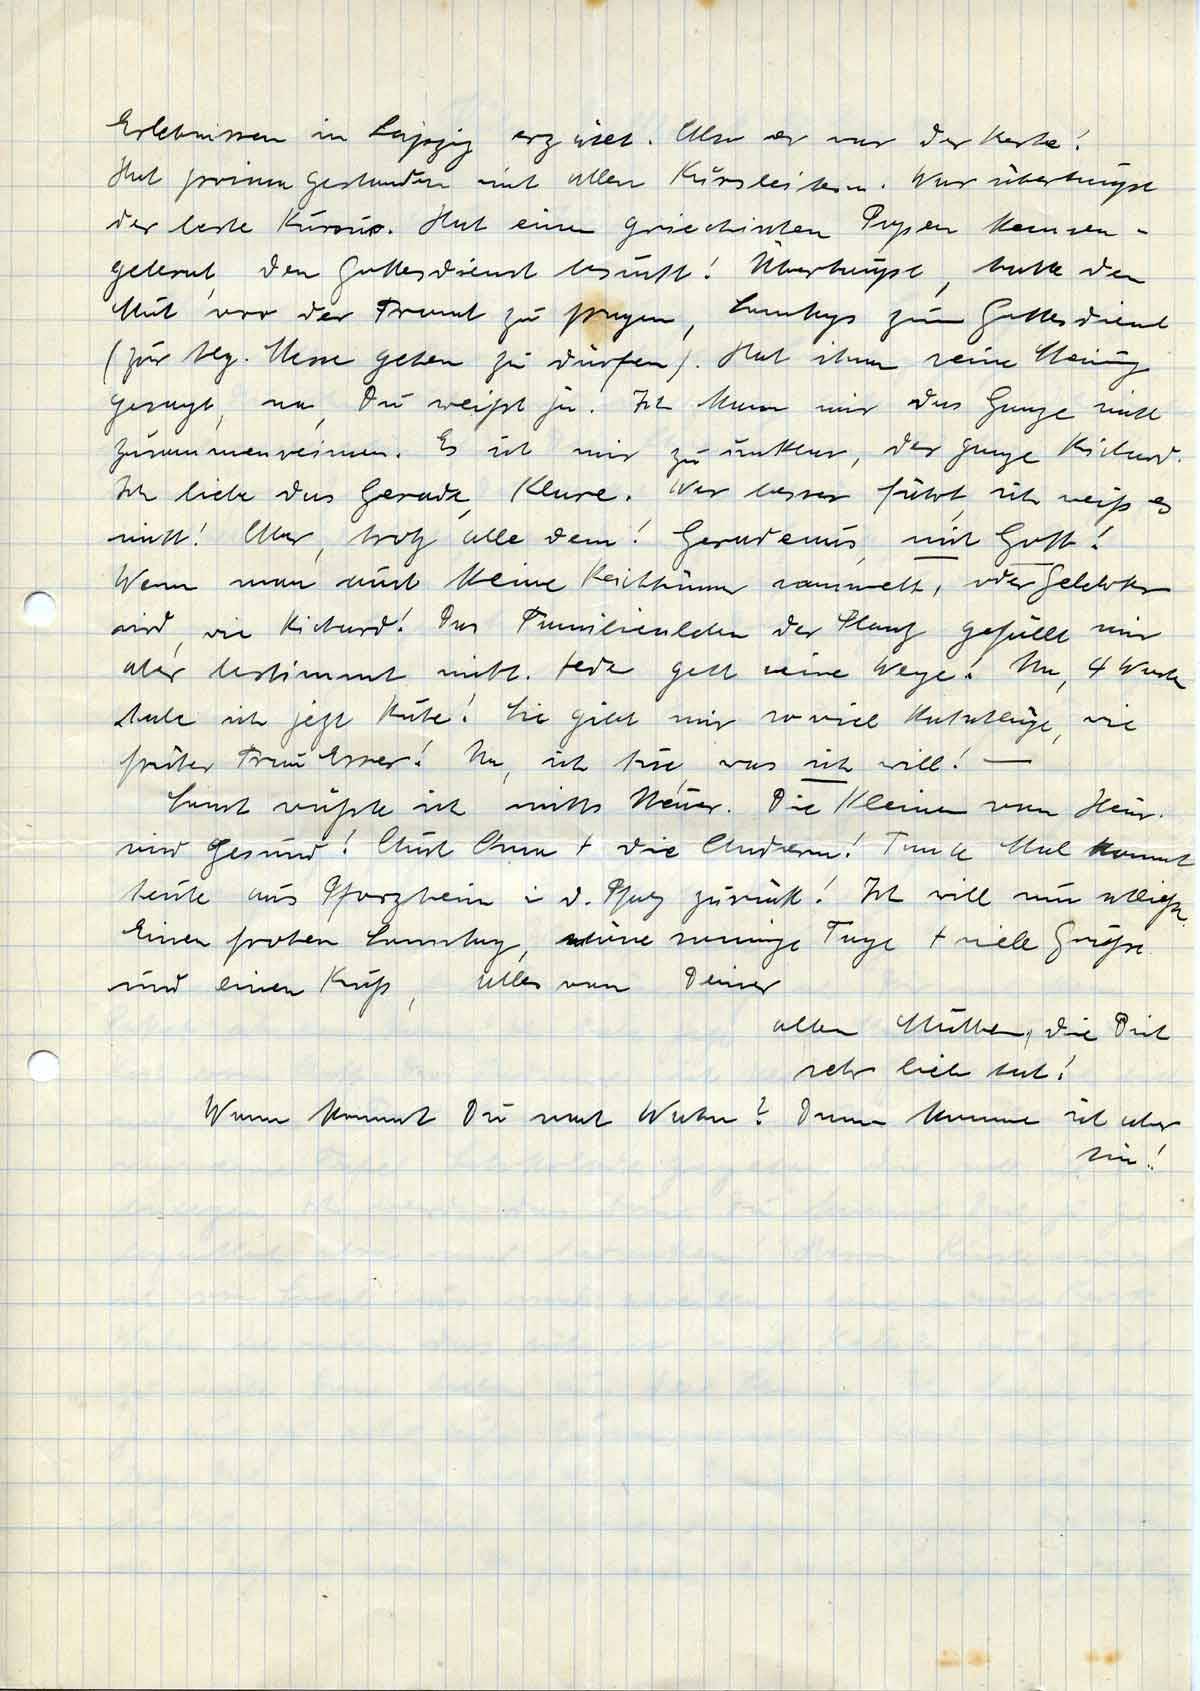 Erlebnissen in Leipzig erzählt. Also er war der Beste!
Hat prima gestanden mit allen Kursleitern. War überhaupt
der beste Kursus. Hat einen griechischen Popen kennen-
gelernt, den Gottesdienst besucht! Überhaupt, hatte den
Mut vor der Front zu fragen, Sonntags zum Gottesdienst
(zur hlg. Messe gehen zu dürfen). Hat ihnen seine Meinung
gesagt, na, Du weißt ja. Ich kann mir das Ganze nicht
zusammenreimen. Es ist mir zu unklar, der ganze Richard.
Ich liebe das Gerade, Klare. Wer besser fährt, ich weiß es
nicht! Aber, trotz alle dem! Geradeaus, mit Gott!
Wenn man auch keine Reichtümer sammelt, oder Gelehrter
wird, wie Richard! Das Familienleben der gefällt mir
aber bestimmt nicht. Jeder geht seine Wege! Na, 4 Wochen
habe ich jetzt Ruhe! Sie gibt mir so viel Ratschläge, wie
früher Frau Esser! Na, ich tue, was ich will! —
Sonst wüßte ich nichts Neues. Die Kleinen von Hein.
sind gesund! Auch Anna + die Anderen! Tante Mal kommt
heute aus Pforzheim i. d. Pfalz zurück! Ich will nun schließen.
Einen frohen Sonntag, schöne sonnige Tage + viele Grüße
und einen Kuß, alles von Deiner
alten Mutter, die Dich
sehr lieb hat!
Wann kommst Du nach Wahn? Dann komme ich aber
hin!